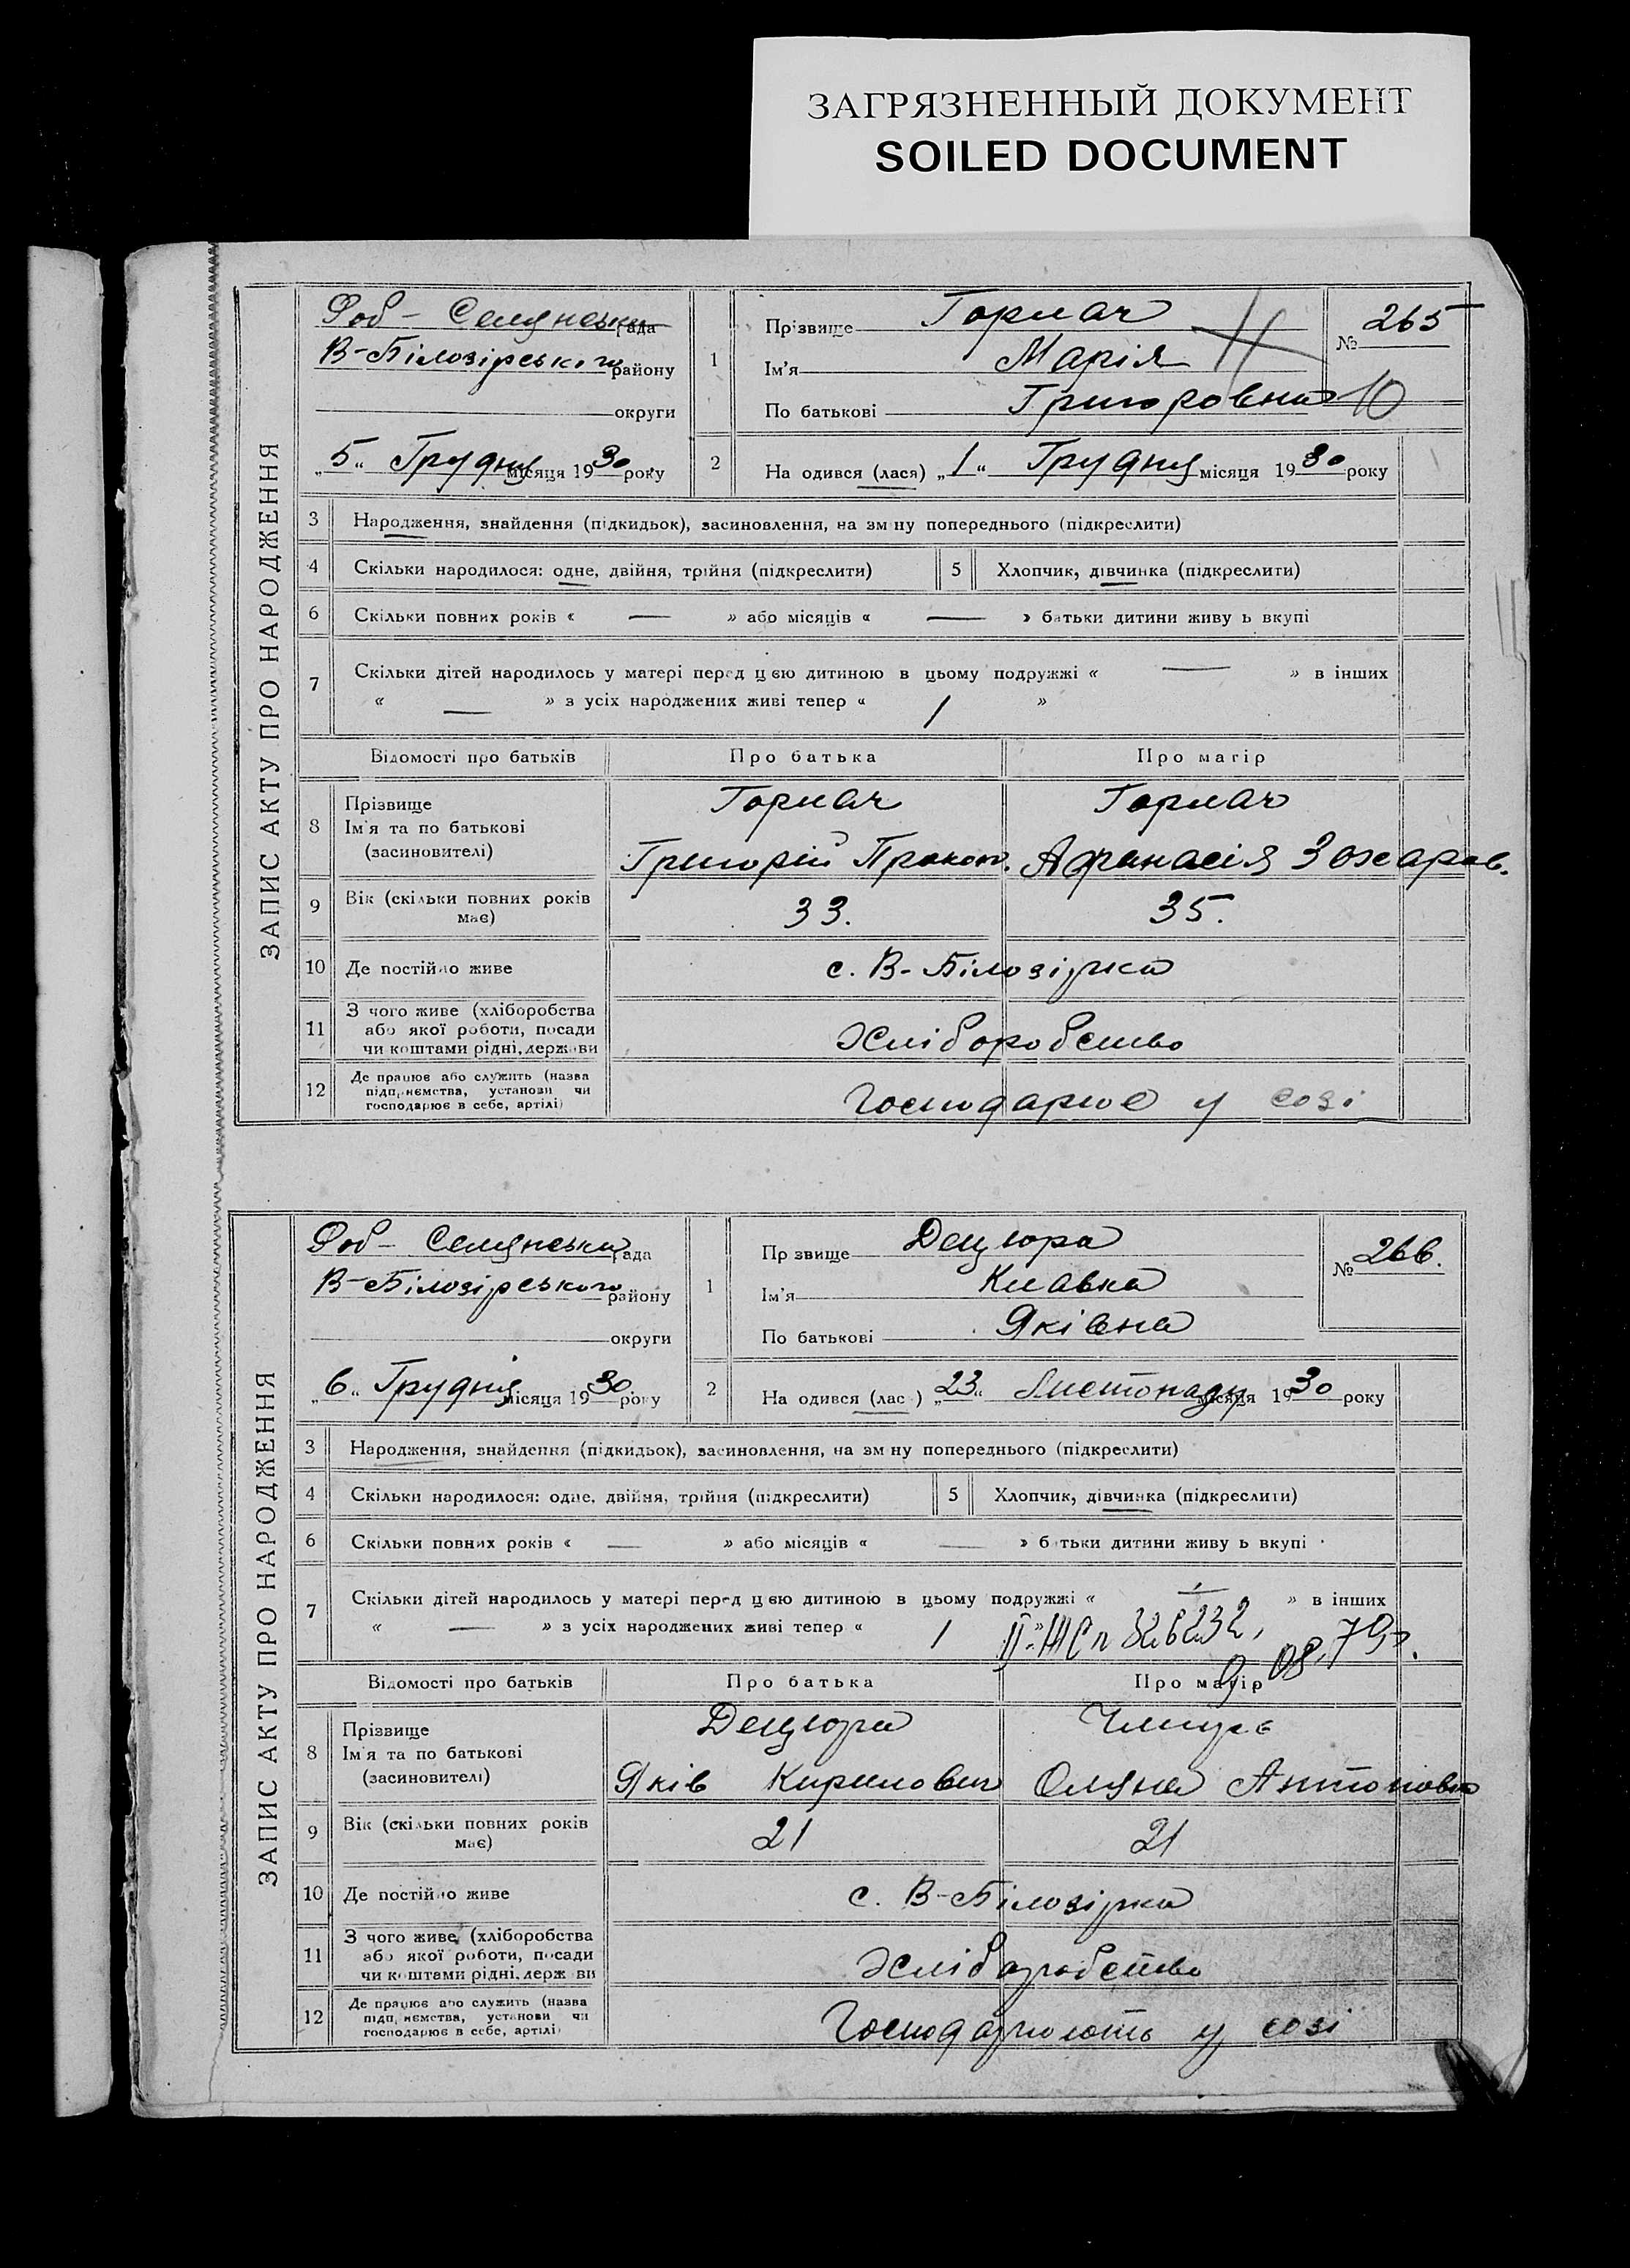 ЗАГРЯЗНЕННЫЙ ДОКУМЕНТ
SOILED DOCUMENT
ЗАПИС АКТУ ПРО НАРОДЖЕННЯ
Роб- Селянська рада
В-Білозірського району
округи
„5“ Грудня місяця 1930 року
1
Прізвище Горлач
Ім'я Марія
По батькові Григоровна
№ 265
10
2
На одився (лася) „1“ Грудня місяця 1930 року
3 Народження, знайдення (підкидьок), засиновлення, на зм ну попереднього (підкреслити)
4 Скільки народилося: одне, двійня, трійня (підкреслити) 5 Хлопчик, дівчинка (підкреслити)
6 Скільки повних років « — » або місяців « — » батьки дитини живу ь вкупі
7 Скільки дітей народилось у матері перед цією дитиною в цьому подружжі « — » в інших
« — » з усіх народжених живі тепер « 1 »
Відомості про батьків Про батька Про матір
8 Прізвище Горлач Горлач
Ім'я та по батькові
(засиновителі) Григорій Прокоп. Афанасія Зохаров.
9 Вік (скільки повних років має) 33. 35.
10 Де постійно живе с. В-Білозірка
11 З чого живе (хліборобства
або якої роботи, посади
чи коштами рідні, держави Хліборобство
12 Де працює або служить (назва
підприємства, установи чи
господарює в себе, артілі) Господарює у созі
ЗАПИС АКТУ ПРО НАРОДЖЕННЯ
Роб- Селянська рада
В-Білозірського району
округи
„6“ Грудня місяця 1930 року
1
Пр звище Децюра
Ім'я Клавка
По батькові Яківна
№ 266.
2
На одився (лас ) „23“ Листопаду місяця 1930 року
3 Народження, знайдення (підкидьок), засиновлення, на зм ну попереднього (підкреслити)
4 Скільки народилося: одне, двійня, трійня (підкреслити) 5 Хлопчик, дівчинка (підкреслити)
6 Скільки повних років « — » або місяців « — » б тьки дитини живу ь вкупі
7 Скільки дітей народилось у матері перед цією дитиною в цьому подружжі « — » в інших
« — » з усіх народжених живі тепер « 1 »
Відомості про батьків Про батька Про матір
8 Прізвище Децюра
Ім'я та по батькові
(засиновителі) Яків Кирилович Оляна Антоновна
9 Вік (скільки повних років має) 21 21
10 Де постійно живе с. В-Білозірка
11 З чого живе (хліборобства
або якої роботи, посади
чи коштами рідні, держ ви Хліборобство
12 Де працює або служить (назва
підпр иємства, установи чи
господарює в себе, артілі) Господарюють у созі